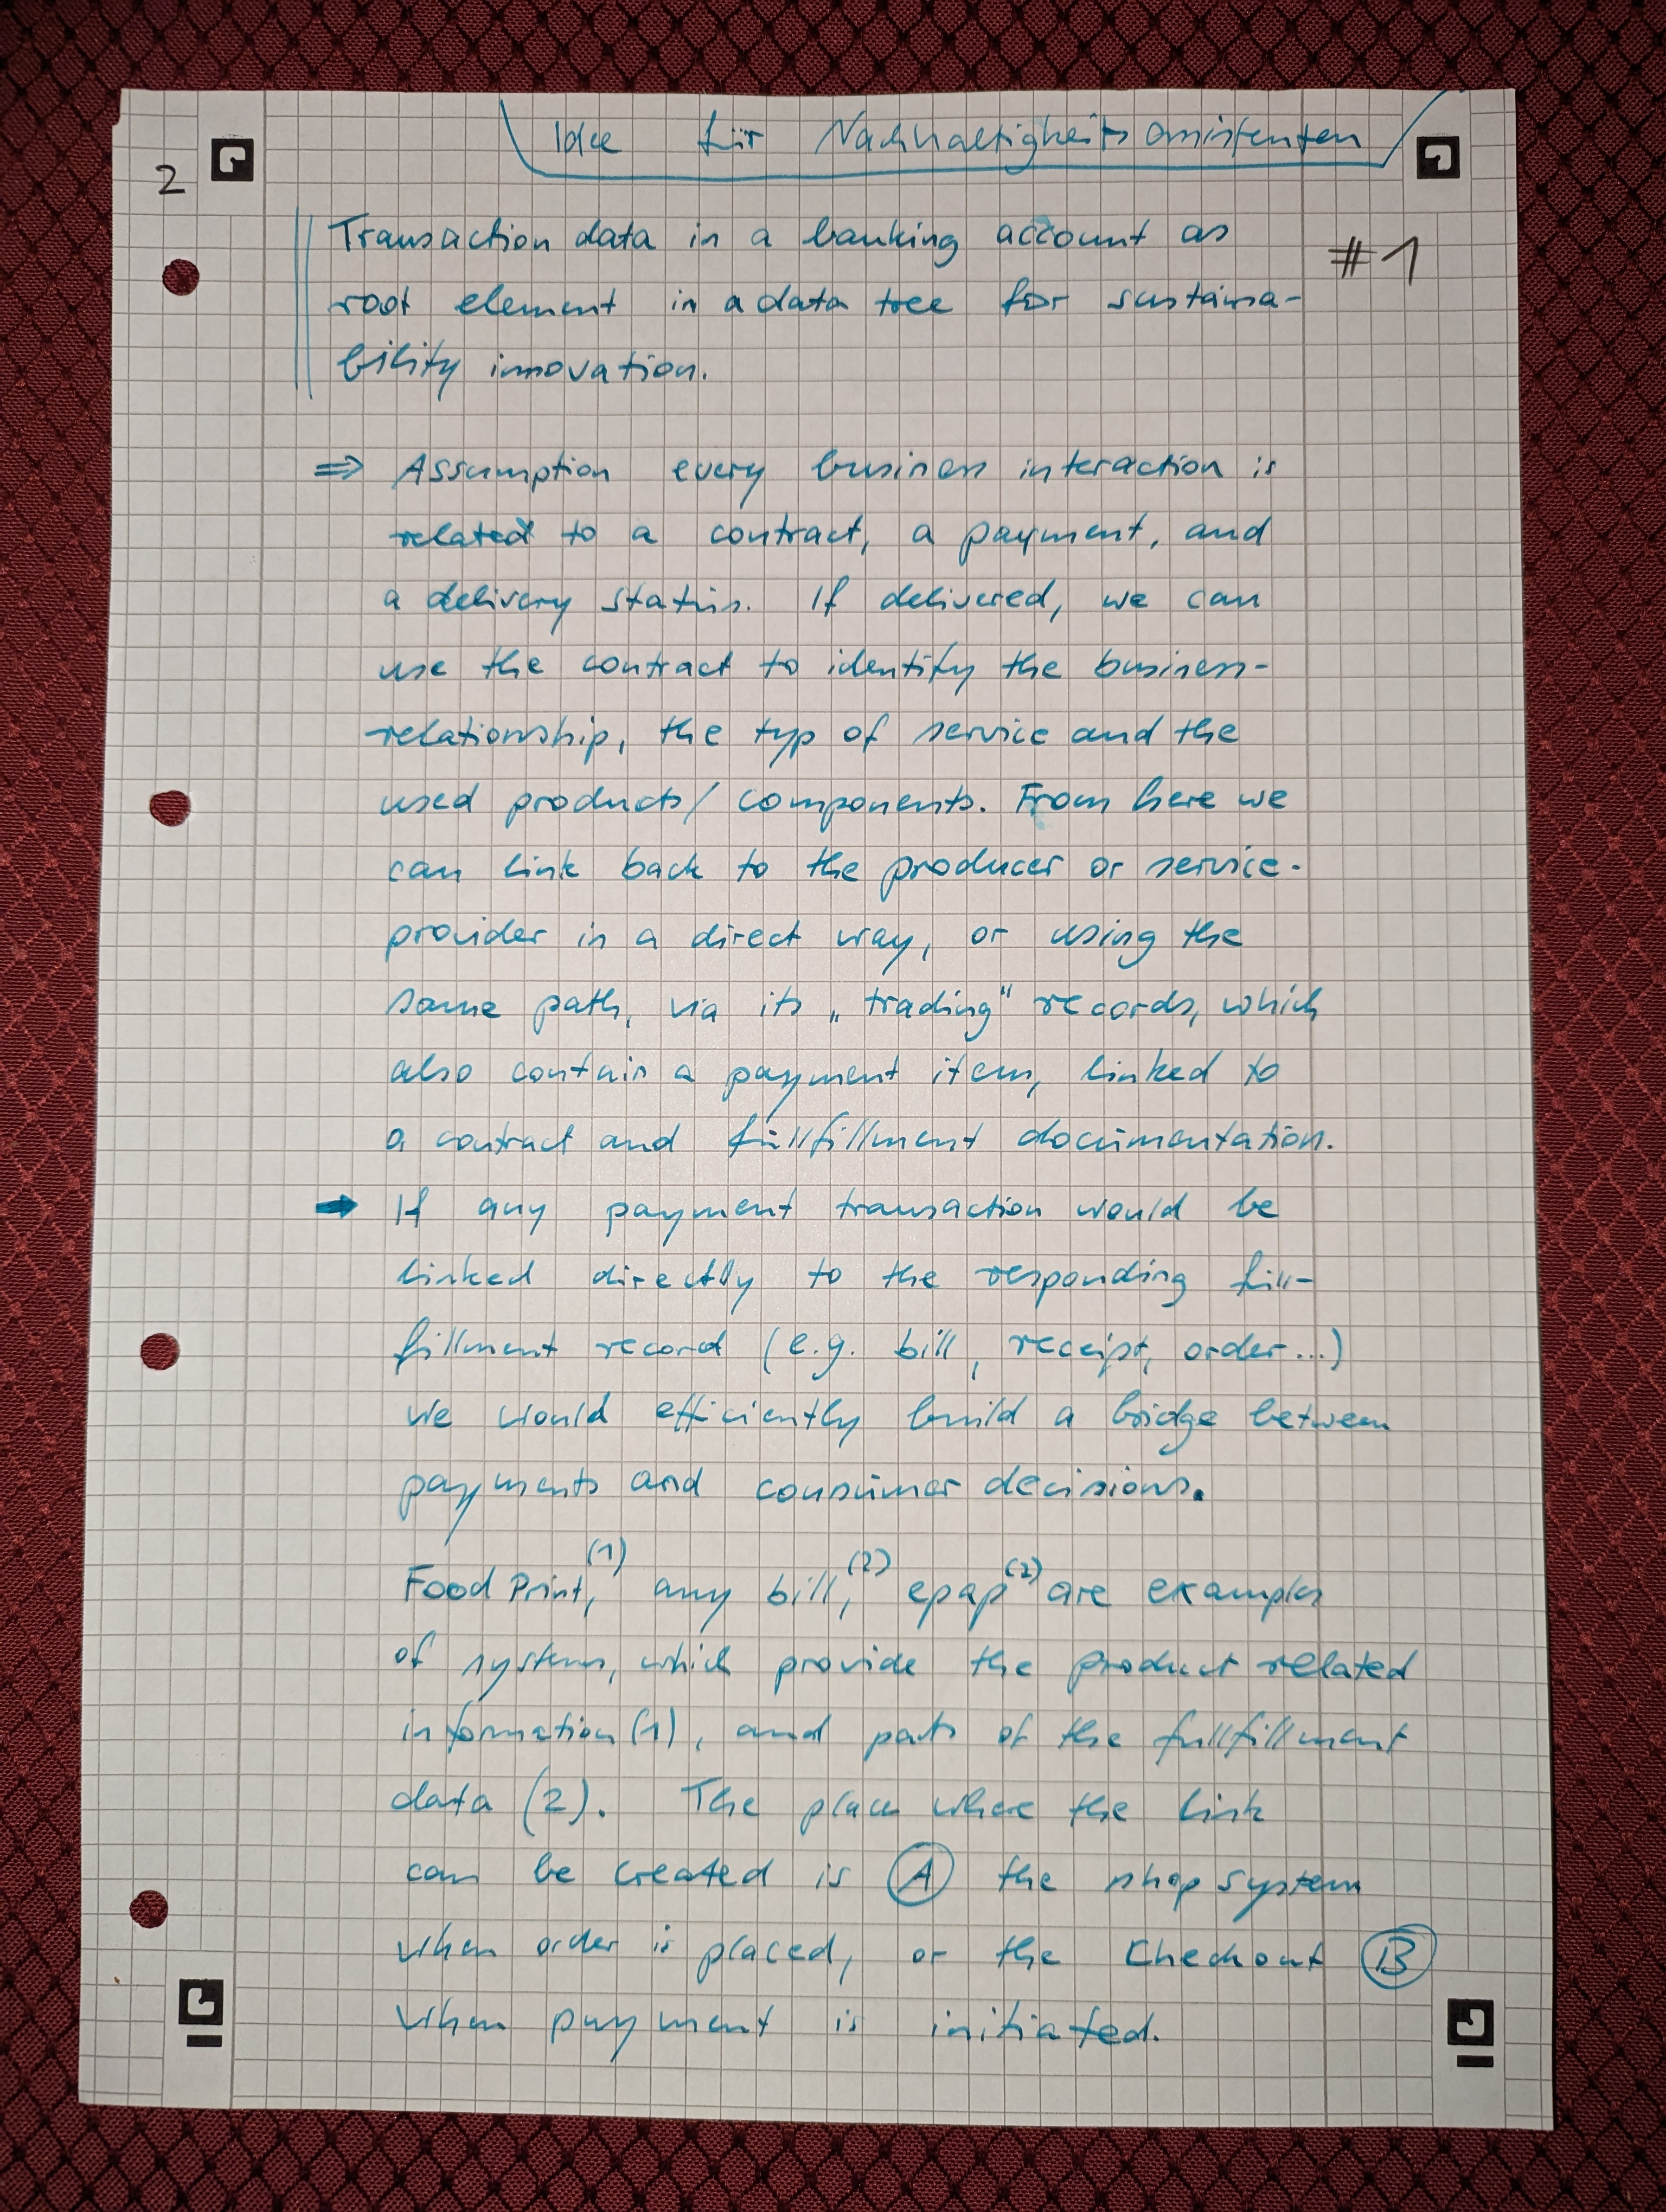 Idee für Nachhaltigkeitsassistenten
2
#1
Transaction data in a banking account as
root element in a data tree for sustaina-
bility innovation.
⇒ Assumption every business interaction is
related to a contract, a payment, and
a delivery status. If delivered, we can
use the contract to identify the business-
relationship, the typ of service and the
used products/components. From here we
can link back to the producer or service-
provider in a direct way, or using the
same path, via its „trading" records, which
also contain a payment item, linked to
a contract and fullfillment documentation.
➡ If any payment transaction would be
linked directly to the responding full-
fillment record (e.g. bill, receipt, order...)
we would efficiently build a bridge between
payments and consumer decisions.
Food Print,(1) any bill,(2) epap(2) are examples
of systems, which provide the product related
information (1), and parts of the fullfillment
data (2). The place where the link
can be created is Ⓐ the shop system
when order is placed, or the Checkout Ⓑ
when payment is initiated.